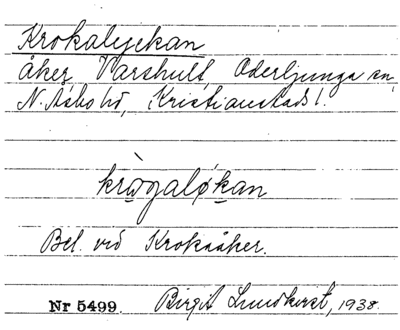 Krokalyckan
åker, Varshult, Oderljunga sn,
N. Åsbo hd, Kristianstads l.
krògaløkan
Bel. vid Kroksåker.
Nr 5499. Birgit Lundkvist, 1938.